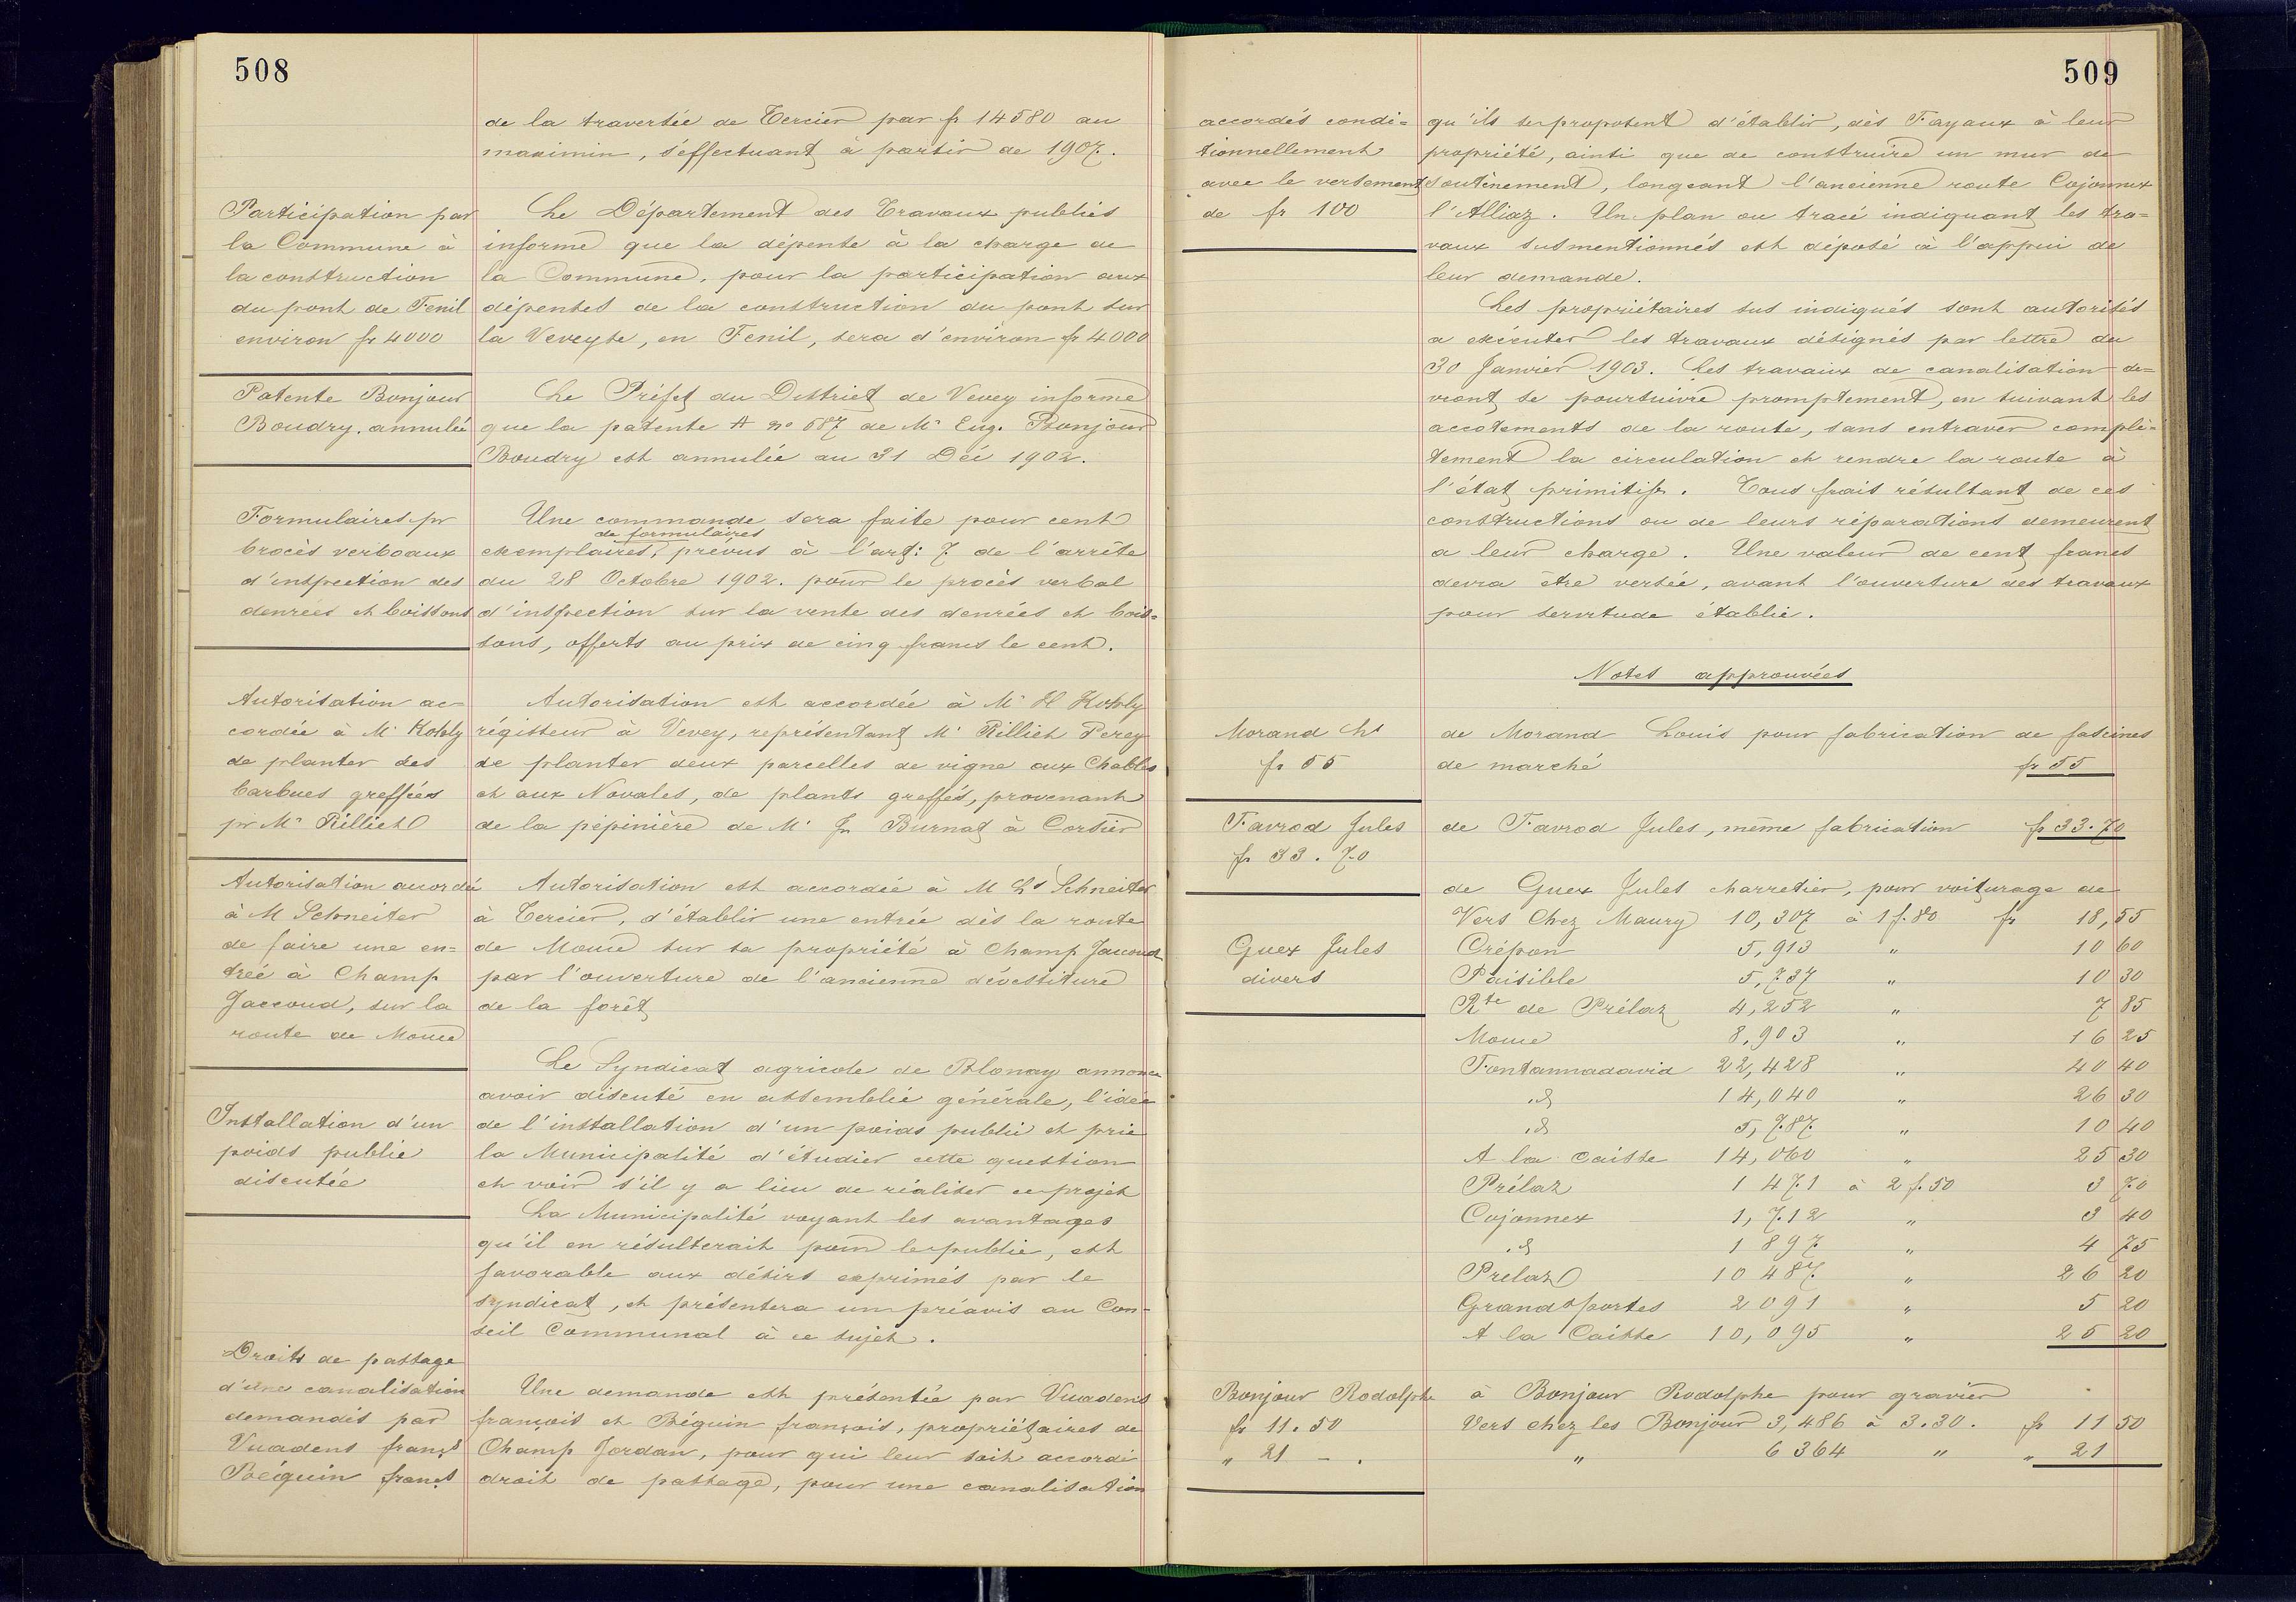 508
de la traversée de Tercier par fr 14580 au
maximin, s'effectuant à partir de 1907.
Participation par
la Commune à
la construction
du pont de Fenil
environ fr 4000
Le Département des Travaux publics
informe que la dépense à la charge de
la Commune, pour la participation aux
dépenses de la construction du pont sur
la Veveyse, en Fenil, sera d'environ fr 4000
Patente Bonjour
Boudry. annulée
Le Préfet du District de Vevey informe
que la patente A no 687 de Mr Eug. Bonjour
Boudry est annulée au 31 Déc 1902.
Formulaires pr
procès verbaux
d'inspection des
denrées et boissons
Une commande sera faite pour cent
de formulaires
exemplaires, prévus à l'art: 7 de l'arrête
du 28 Octobre 1902. pour le procès verbal
d'inspection sur la vente des denrées et bois=
sons, offerts au prix de cinq francs le cent.
Autorisation ac-
cordée à Mr Kohly
de planter des
barbues greffées
pr Mr Rilliet
Autorisation est accordée à Mr H Kohly
régisseur à Vevey, représentant Mr Rilliet Perey
de planter deux parcelles de vigne aux Chables
et aux Novales, de plants greffés, provenant
de la pépinière de Mr Fr Burnat à Corsier
Autorisation accordée
à M Schneiter
de faire une en=
trée à Champ
Jaccoud, sur la
route de Mouce
Autorisation est accordée à M Ls Schneiter
à Tercier, d'établir une entrée dès la route
de Mouce sur sa propriété à Champ Jaccoud
par l'ouverture de l'ancienne dévestiture
de la forêt
Installation d'un
poids public
discutée
Le Syndicat agricole de Blonay annonce
avoir discuté en assemblée générale, l'idée
de l'installation d'un poids public et prie
la Municipalité d'étudier cette question
et voir s'il y a lieu de réaliser ce projet
La Municipalité voyant les avantages
qu'il en résulterait pour le public, est
favorable aux désirs exprimés par le
syndicat, et présentera un préavis au Con-
seil Communal à ce sujet.
Droits de passage
d'une canalisation
demandés par
Vuadens françs
Béguin françs
Une demande est présentée par Vuadens
françois et Béguin françois, propriétaires de
Champ Jordan, pour qui leur soit accordé
droit de passage, pour une canalisation
509
accordés condi=
tionnellement
avec le versement
de fr 100
qu'ils se proposent d'établir, dès Fayaux à leur
propriété, ainsi que de construire un mur de
soutènement, longeant l'ancienne route Cojonnex
l'Alliaz. Un plan ou tracé indiquant les tra=
vaux susmentionnés est déposé à l'appui de
leur demande.
Les propriétaires sus indiqués sont autorisés
a exécuter les travaux désignés par lettre du
30 Janvier 1903. Les travaux de canalisation de=
vront se poursuivre promptement, en suivant les
accotements de la route, sans entraver complè-
tement la circulation et rendre la route à
l'état primitif. Tous frais résultant de ces
constructions ou de leurs réparations demeurent
a leur charge. Une valeur de cent francs
devra être versée, avant l'ouverture des travaux
pour servitude établie.
Notes approuvées
Morand Ls
fr 55
de Morand Louis pour fabrication de fascines
de marché fr 55
Favrod Jules
fr 33.70
de Favrod Jules, même fabrication fr 33.70
Guex Jules
divers
de Guex Jules charretier, pour voiturage de
Vers Chez Maury 10,307 à 1 f. 80 fr 18,55
Crépon 5,913 " 10 60
Paisible 5,737 " 10 30
Rte de Prélaz 4,252 " 7 85
Mouce 8,903 " 16 25
Fontannadavid 22,428 " 40 40
id 14,040 " 26 30
id 5,787 " 10 40
A la Caisse 14,060 " 25 30
Prélaz 1 471 à 2 f. 50 3 70
Cojonnex 1,712 " 3 40
id 1 897 " 4 75
Prélaz 10 487 " 26 20
Grands portes 2091 " 5 20
A la Caisse 10,095 " 25 20
Bonjour Rodolphe
fr 11.50
" 21 - .
à Bonjour Rodolphe pour gravier
Vers chez les Bonjour 3,486 à 3.30. fr 11 50
" 6 364 " " 21